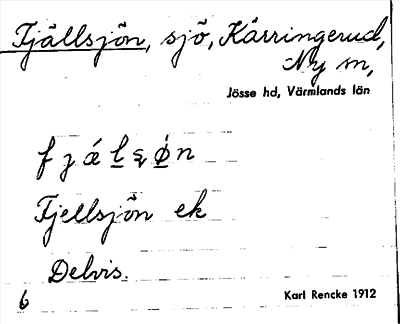 Fjällsjön, sjö, Kärringerud,
Ny sn,
Jösse hd, Värmlands län
Fjellsjön ek
Delvis.
6
Karl Rencke 1912